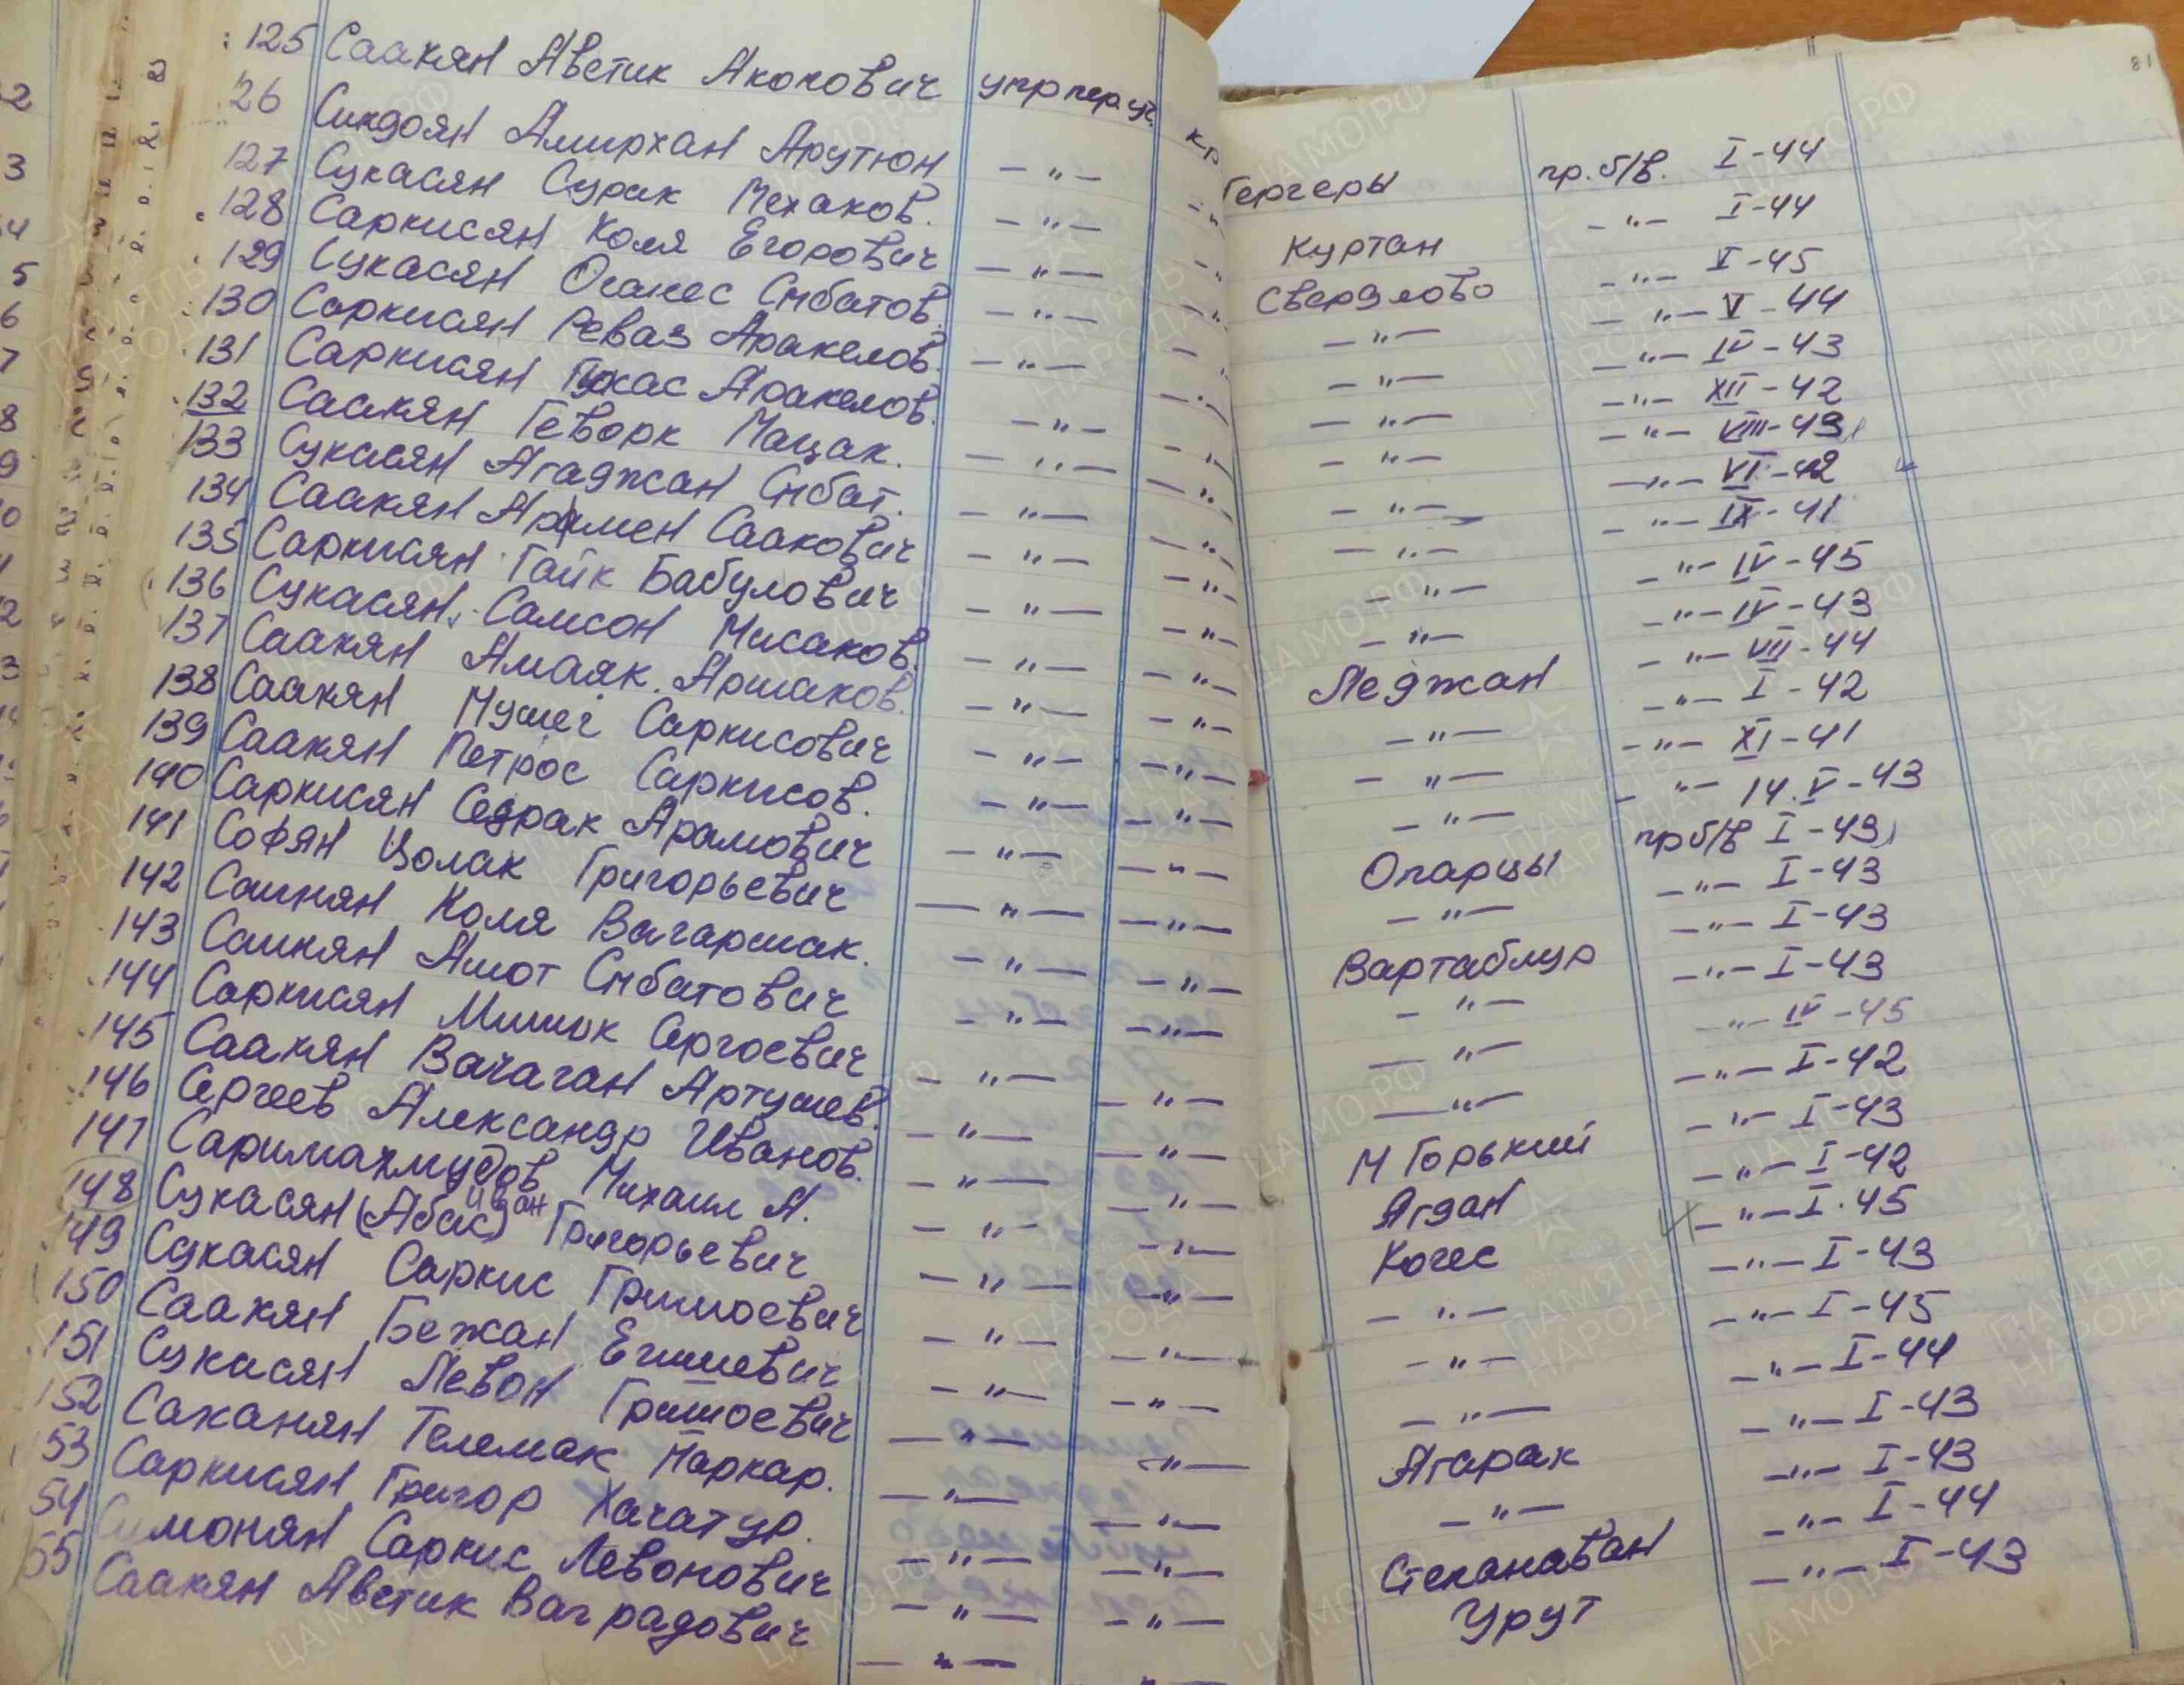 125 Саакян Аветик Акопович упр пер. уч. кр
26 Синдоян Амирхан Арутюн — " —
127 Сукасян Сурик Мехаков. — " —
128 Саркисян Коля Егорович — " —
129 Сукасян Оганес Смбатов. — " —
130 Саркисян Реваз Аракелов. — " —
131 Саркисян Гукас Аракелов. — " —
132 Саакян Геворк Мацак. — " —
133 Сукасян Агаджан Смбат. — " —
134 Саакян Армен Саакович — " —
135 Саркисян Гайк Бабулович — " —
136 Сукасян Самсон Мисаков. — " —
137 Саакян Амаяк Аршаков. — " —
138 Саакян Мушег Саркисович — " —
139 Саакян Петрос Саркисов. — " —
140 Саркисян Седрак Арамович — " —
141 Софян Цолак Григорьевич — " —
142 Саинян Коля Вагаршак. — " —
143 Саинян Ашот Смбатович — " —
144 Саркисян Мишик Сергоевич — " —
145 Саакян Вачаган Артушев. — " —
146 Сергеев Александр Иванов. — " —
147 Саримахмудов Михаил А. — " —
148 Сукасян (Абас) Иван Григорьевич — " —
149 Сукасян Саркис Гришоевич — " —
150 Саакян Бежан Егишевич — " —
151 Сукасян Левон Гришоевич — " —
152 Саканян Телемак Маркар. — " —
53 Саркисян Григор Хачатур. — " —
54 Симонян Саркис Левонович — " —
55 Саакян Аветик Ваградович — " —
81
Гергеры пр. б/в. I-44
— " — I-44
Куртан — " — I-45
Свердлово — " — V-44
— " — — " — IV-43
— " — — " — XII-42
— " — — " — VIII-43
— " — — " — VI-42
— " — — " — IX-41
— " — — " — IV-45
— " — — " — IV-43
— " — — " — VII-44
Леджан — " — I-42
— " — — " — XI-41
— " — — " — 14.V-43
— " — пр б/в I-43
Опарцы — " — I-43
— " — — " — I-43
Вартаблур — " — I-43
— " — — " — IV-45
— " — — " — I-42
— " — — " — I-43
М Горький — " — I-42
Агдан — " — I-45
Когес — " — I-43
— " — — " — I-45
— " — — " — I-44
— " — — " — I-43
Агарак — " — I-43
— " — — " — I-44
Степанаван — " — I-43
Урут